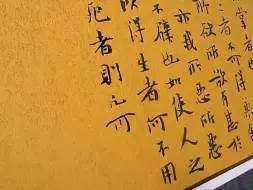 掌
二者不可得兼
所欲所欲有甚於
亦我所惡所惡
不辟也如使人之
以得生者何不用
死者則凡可